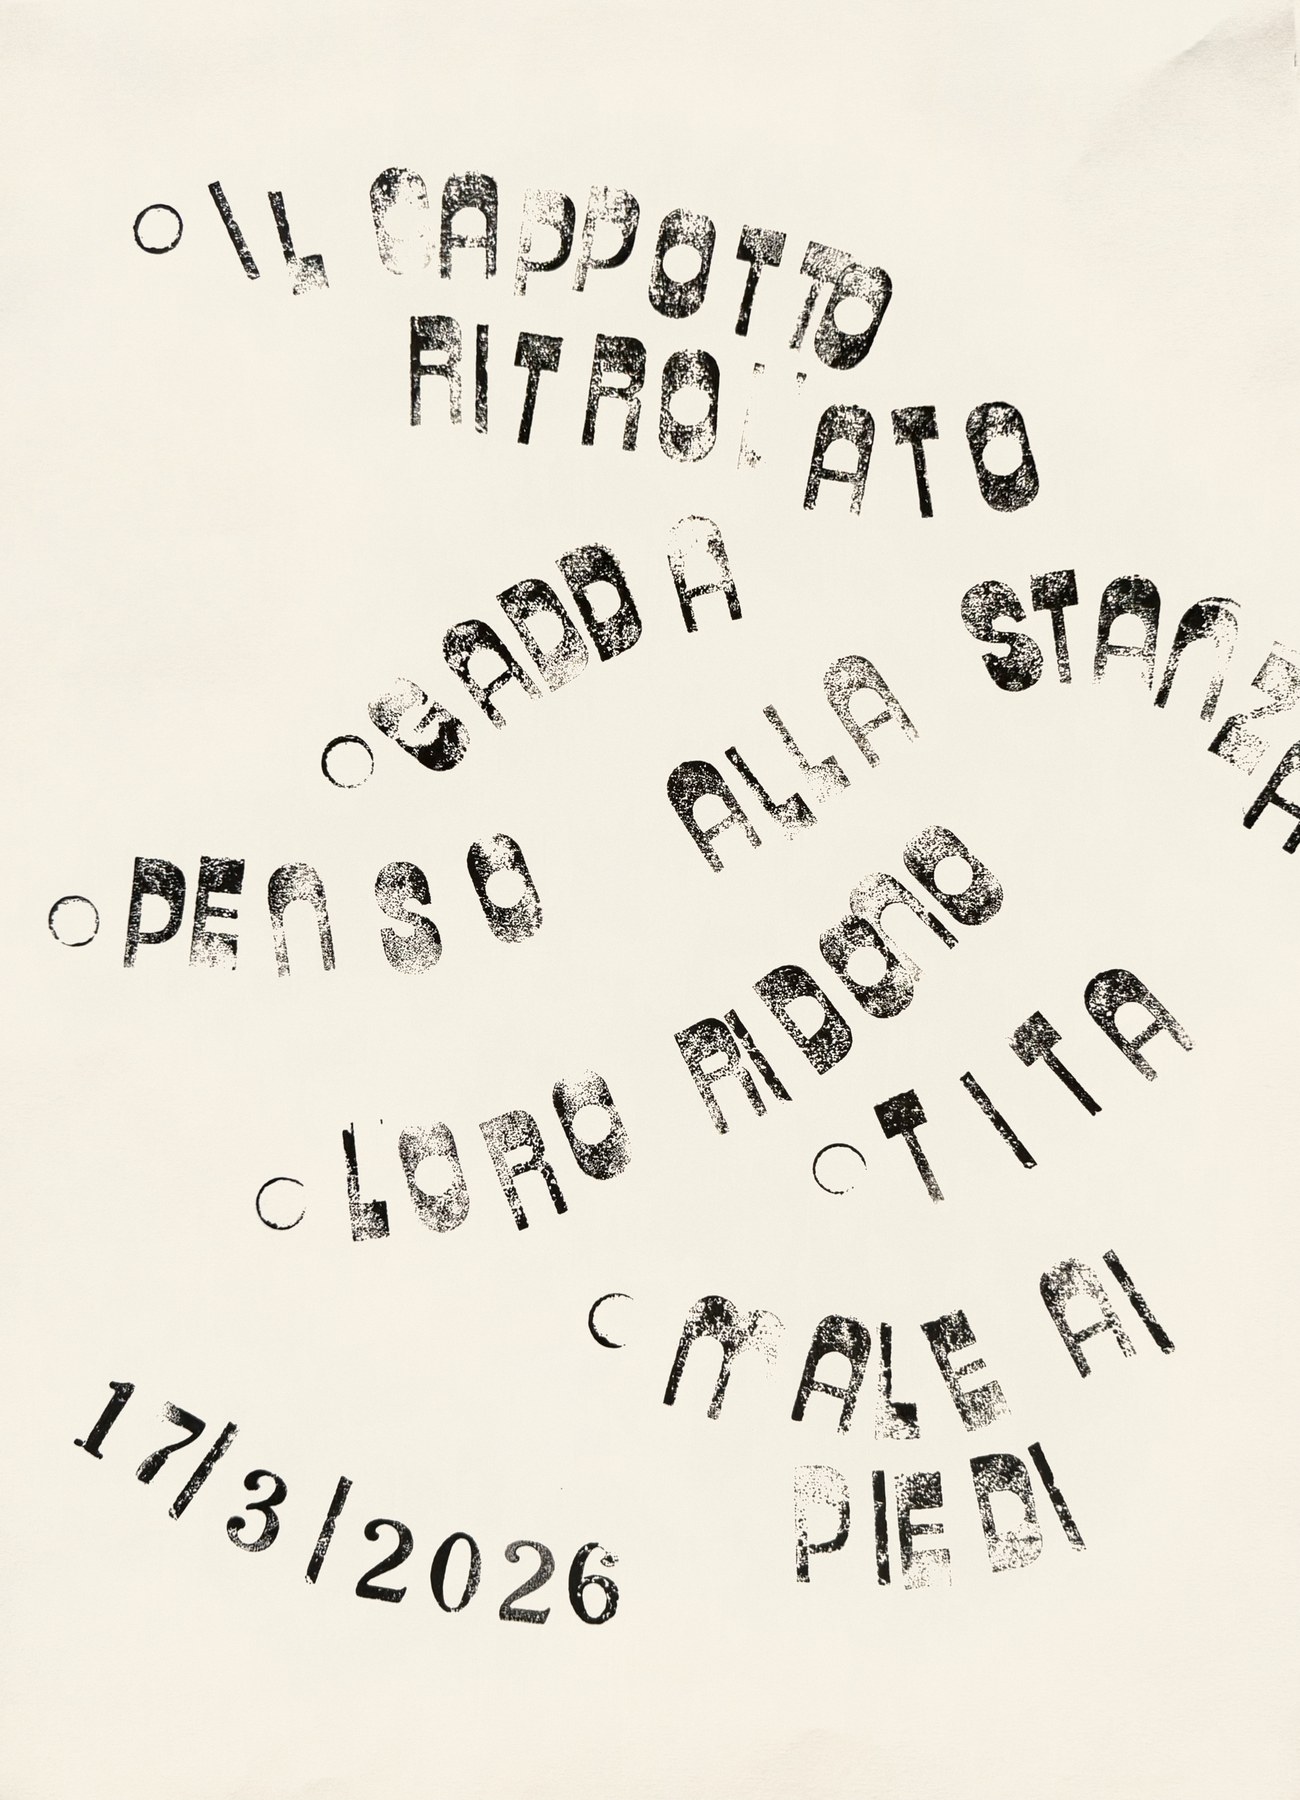 ○ IL CAPPOTTO
RITROVATO
○ GADDA
○ PENSO ALLA STANZA
○ LORO RIDONO
○ TITA
○ MALE AI
PIEDI
17/3/2026